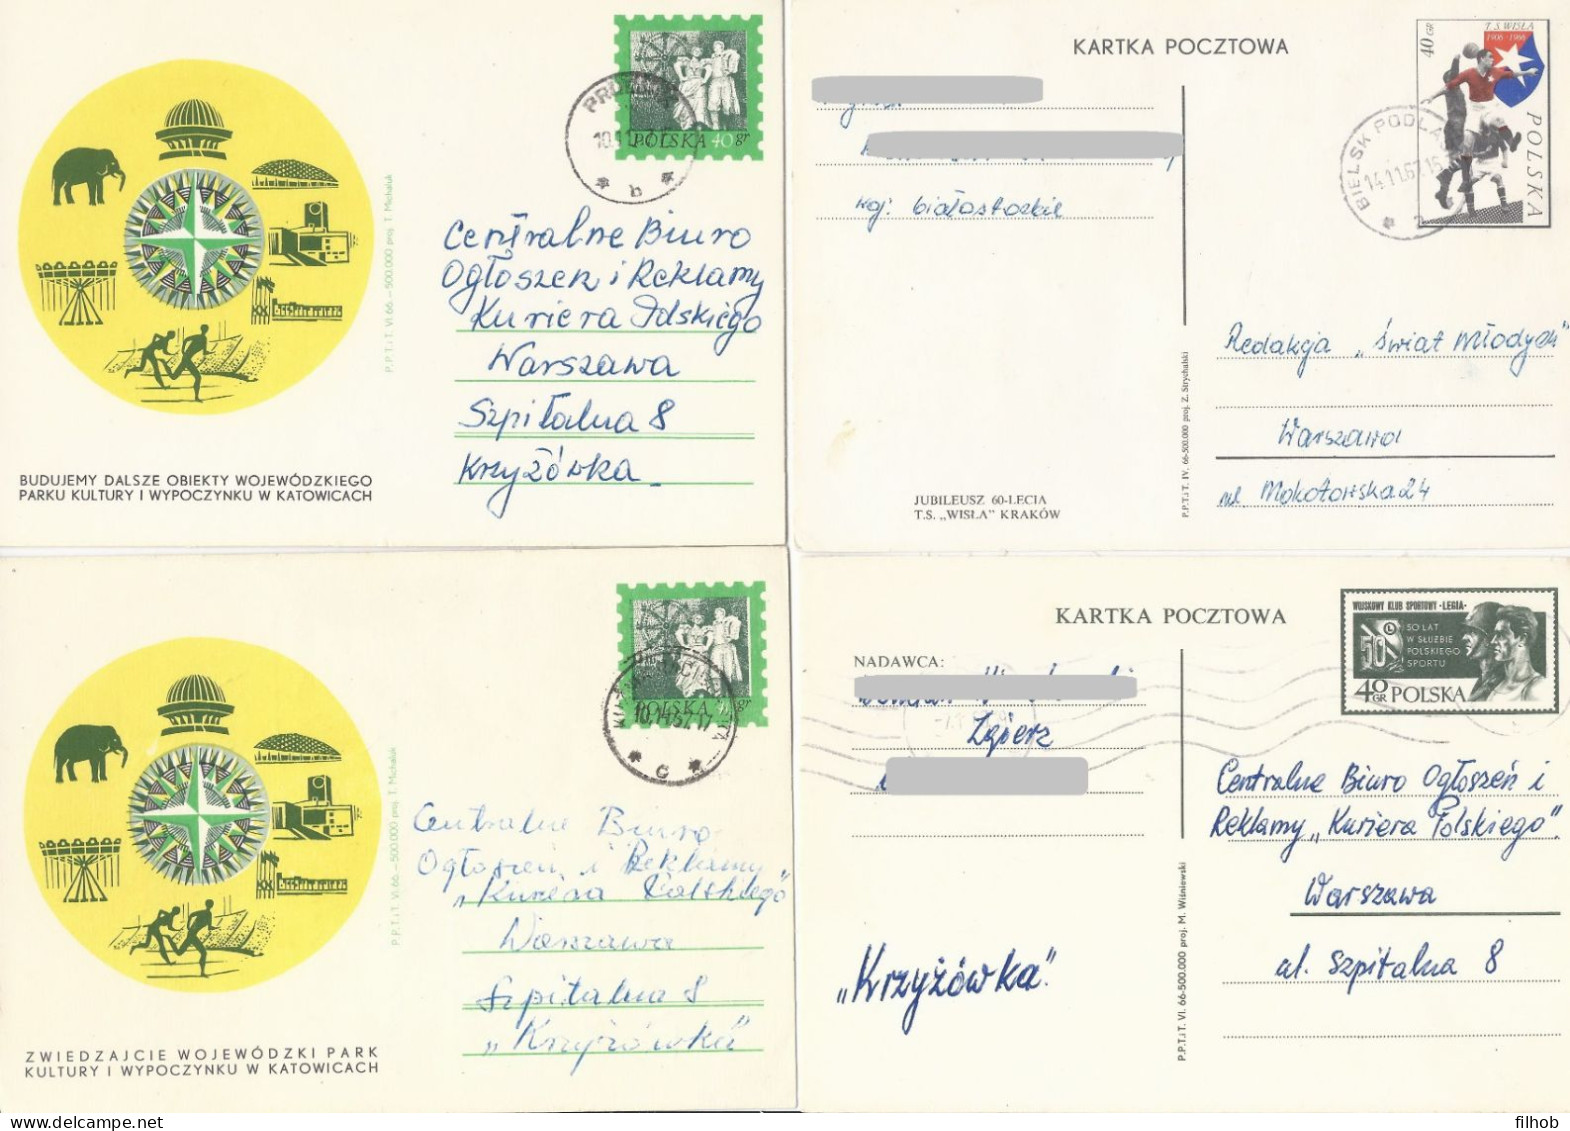 POLSKA 40 gr
P.P.T. i T. VI. 66. – 500.000 proj. T. Michaluk
Centralne Biuro
Ogłoszeń i Reklamy
Kuriera Polskiego
Warszawa
Szpitalna 8
Krzyżówka
BUDUJEMY DALSZE OBIEKTY WOJEWÓDZKIEGO
PARKU KULTURY I WYPOCZYNKU W KATOWICACH
KARTKA POCZTOWA
T.S. WISŁA
1906-1966
40 GR
POLSKA
BIELSK PODLA
14.11.67.15
woj: białostockie
Redakcja „Świat Młodych"
Warszawa
ul. Mokotowska 24
JUBILEUSZ 60-LECIA
T.S. „WISŁA" KRAKÓW
P.P.T. i T. IV. 66-500.000 proj. Z. Strychalski
POLSKA gr
P.P.T. i T. VI. 66. – 500.000 proj. T. Michaluk
Centralne Biuro
Ogłoszeń i Reklamy
„Kuriera Polskiego"
Warszawa
Szpitalna 8
„Krzyżówka"
ZWIEDZAJCIE WOJEWÓDZKI PARK
KULTURY I WYPOCZYNKU W KATOWICACH
KARTKA POCZTOWA
WOJSKOWY KLUB SPORTOWY -LEGIA-
50 L
50 LAT
W SŁUŻBIE
POLSKIEGO
SPORTU
40 GR POLSKA
NADAWCA:
Zgierz
Centralne Biuro Ogłoszeń i
Reklamy „Kuriera Polskiego".
Warszawa
ul. Szpitalna 8
„Krzyżówka".
P.P.T. i T. VI. 66-500.000 proj. M. Wiśniewski
filhob